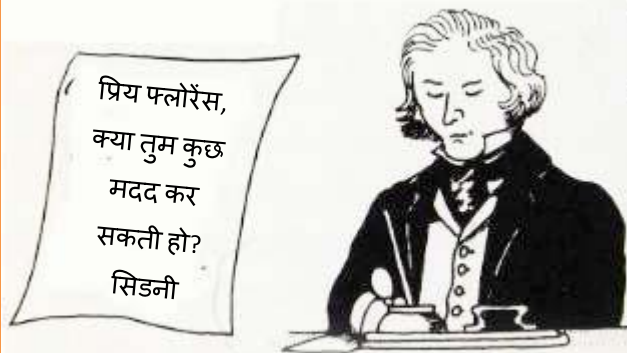 प्रिय फ्लोरेंस,
क्या तुम कुछ
मदद कर
सकती हो?
सिडनी